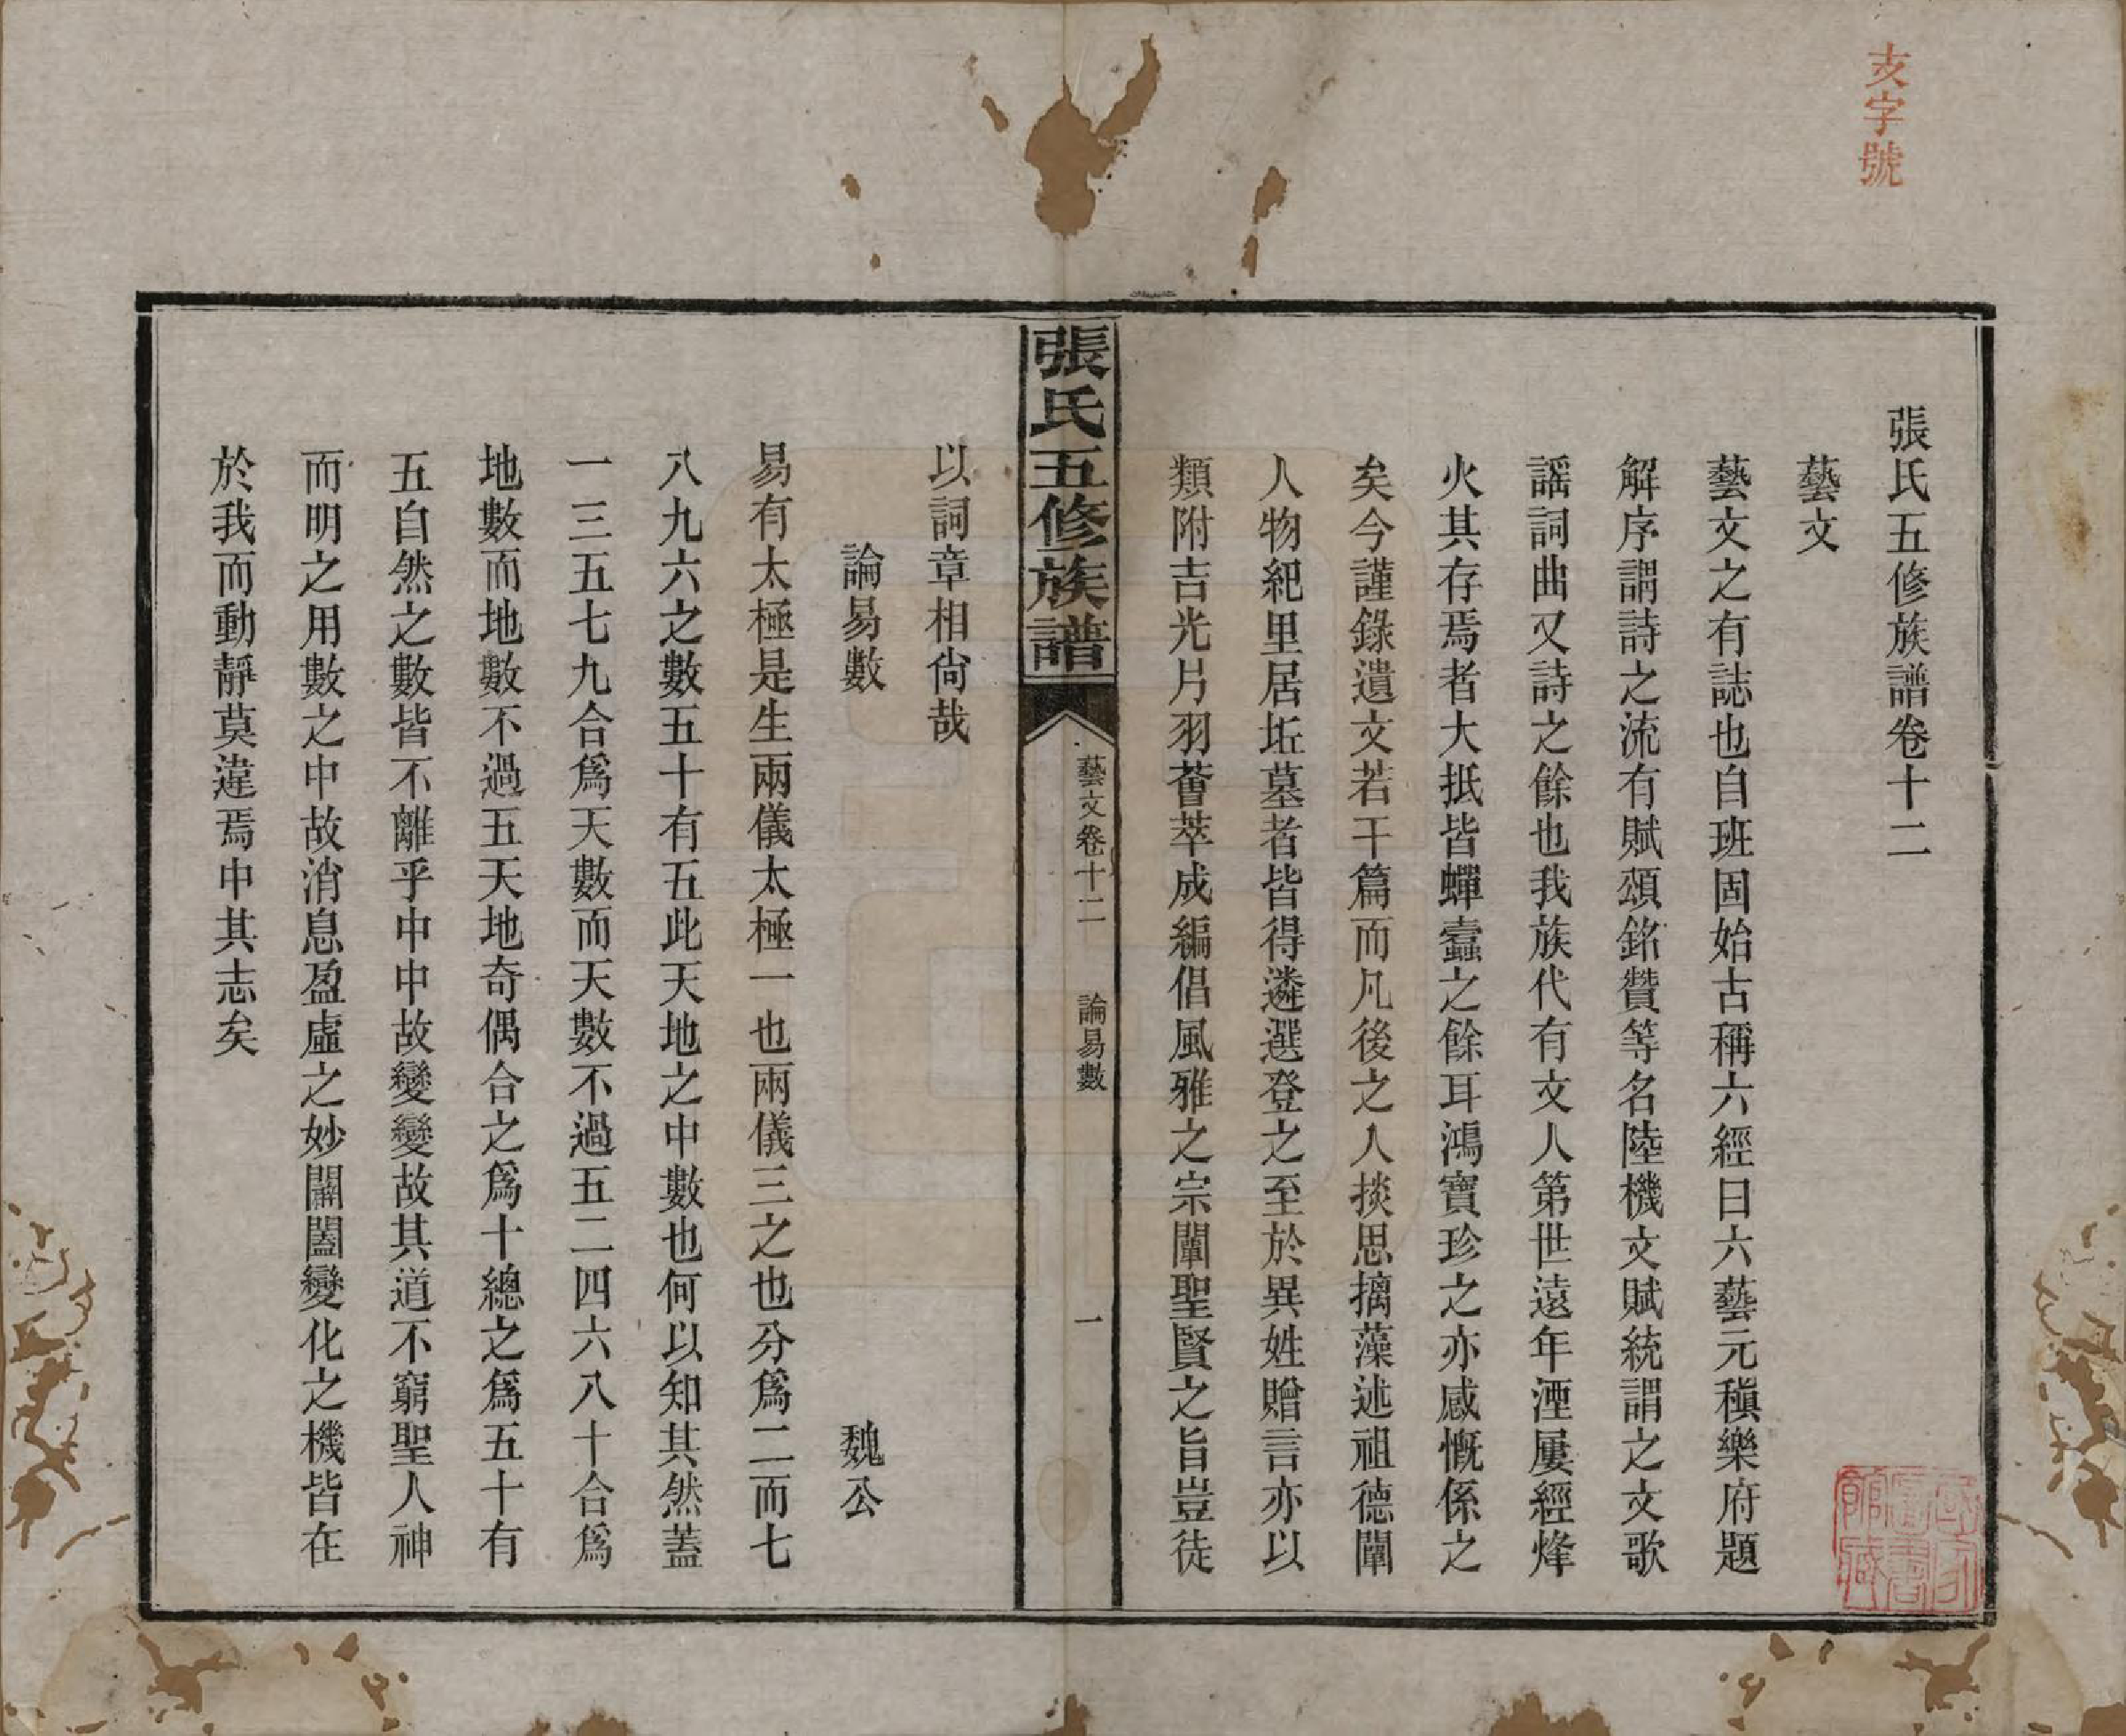 亥字號
張氏五修族譜卷十二
藝文
藝文之有誌也自班固始古稱六經曰六藝元稹樂府題
解序謂詩之流有賦頌銘贊等名陸機文賦統謂之文歌
謡詞曲又詩之餘也我族代有文人第世遠年湮屢經烽
火其存焉者大抵皆蟫蠹之餘耳鴻寶珍之亦感慨係之
矣今謹錄遺文若干篇而凡後之人掞思摛藻述祖德闡
人物紀里居坵墓者皆得遴選登之至於異姓贈言亦以
類附吉光片羽薈萃成編倡風雅之宗闡聖賢之旨豈徒
張氏五修族譜
藝文卷十二 論易數 一
以詞章相尙哉
論易數 魏公
易有太極是生兩儀太極一也兩儀三之也分爲二而七
八九六之數五十有五此天地之中數也何以知其然蓋
一三五七九合爲天數而天數不過五二四六八十合爲
地數而地數不過五天地奇偶合之爲十總之爲五十有
五自然之數皆不離乎中中故變變故其道不窮聖人神
而明之用數之中故消息盈虛之妙闢闔變化之機皆在
於我而動靜莫違焉中其志矣
國家圖書館藏